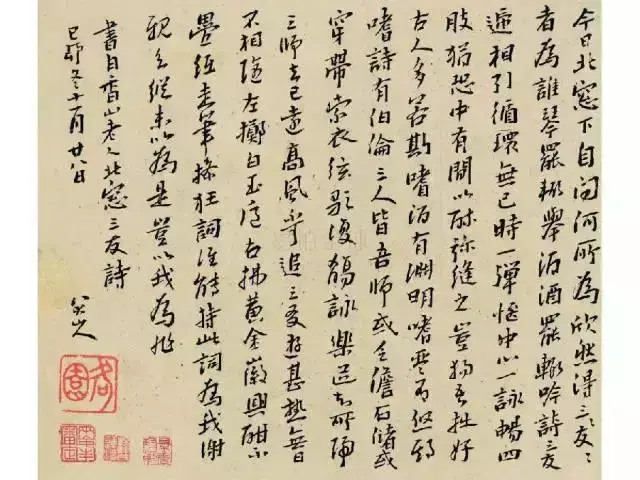 今日北窓下自問何所為欣然得三友〻
者為誰琴罷輒舉酒酒罷輒吟詩三友
遞相引循環無已時一彈愜中心一詠暢四
肢猶恐中有間以酣彌縫之豈獨吾拙好
古人多若斯嗜酒有淵明嗜琴有啟期
嗜詩有伯倫三人皆吾師或乏儋石儲或
穿帶索衣弦歌復觴詠樂道知所歸
三師去已遠高風不可追三友遊甚熟無日
不相隨左擲白玉卮右拂黃金徽興酣不
疊紙走筆操狂詞誰能持此詞為我謝
親知縱未以為是豈以我為非
書白香山老人北窓三友詩
己卯冬十一月廿八日
八大山人